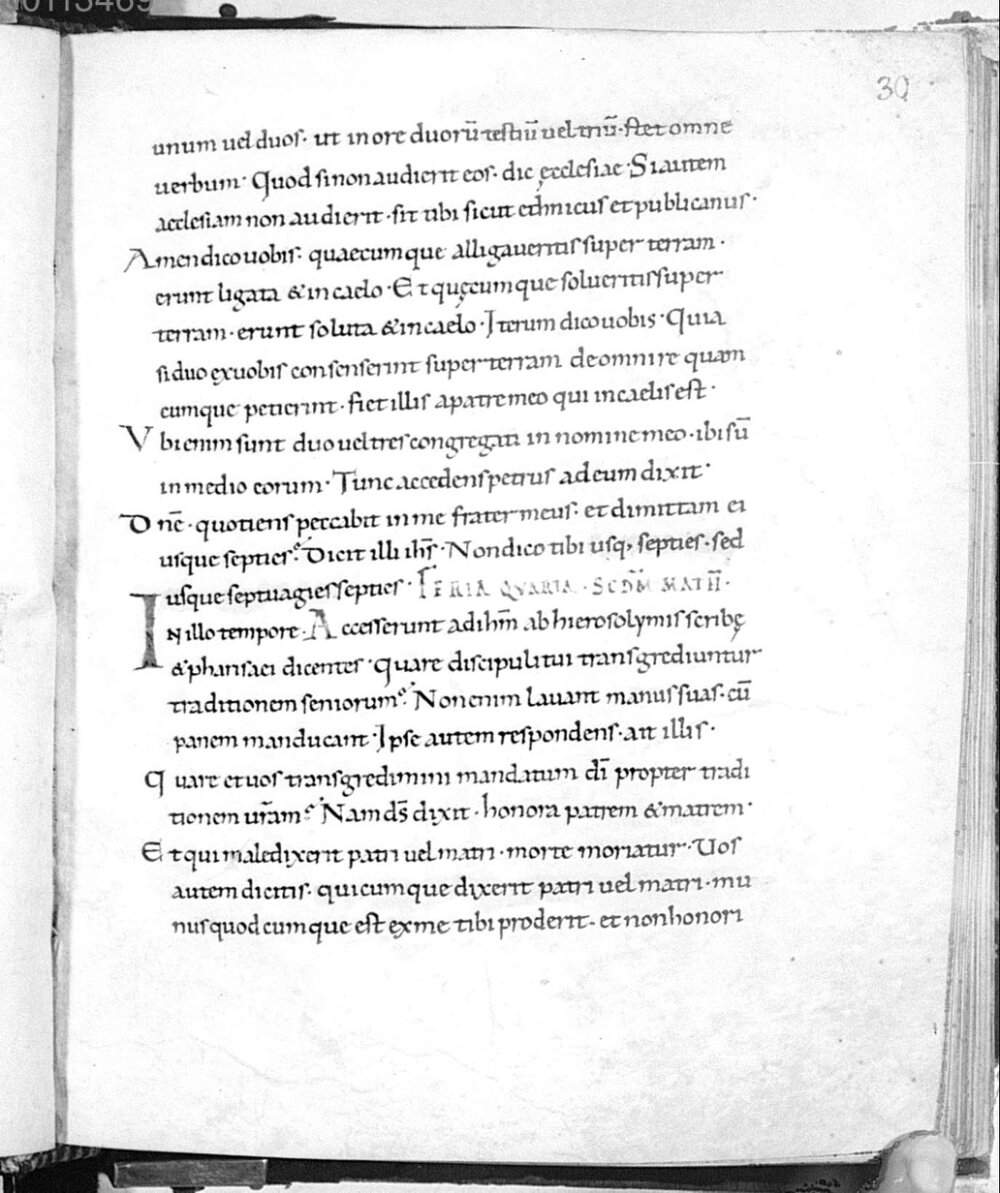 00113489
30
unum uel duos· ut in ore duorū testiū uel triū· stet omne
uerbum· Quod si non audierit eos· dic ęcclesiae· Si autem
aecclesiam non audierit· sit tibi sicut ethnicus et publicanus·
Amen dico uobis· quaecumque alligaueritis super terram·
erunt ligata & in caelo· Et quęcumque solueritis super
terram· erunt soluta & in caelo· Iterum dico uobis· Quia
si duo ex uobis consenserint super terram de omni re quam
cumque petierint· fiet illis a patre meo qui in caelis est·
Vbi enim sunt duo uel tres congregati in nomine meo· ibi sū
in medio eorum· Tunc accedens petrus ad eum dixit·
Dnē· quotiens peccabit in me frater meus· et dimittam ei
usque septies? Dicit illi ihs̄· Non dico tibi usq; septies· sed
usque septuagies septies· FERIA QVARIA· SCDM̄ MATH̄·
IN illo tempore· Accesserunt ad ihm̄ ab hierosolymis scribę
& pharisaei dicentes· quare discipuli tui transgrediuntur
traditionem seniorum? Non enim lauant manus suas· cū
panem manducant· Ipse autem respondens· ait illis·
Quare et uos transgredimini mandatum dī propter tradi
tionem ur̄am? Nam ds̄ dixit· honora patrem & matrem·
Et qui maledixerit patri uel matri· morte moriatur· Uos
autem dicitis· quicumque dixerit patri uel matri· mu
nus quodcumque est ex me tibi proderit· et non honori